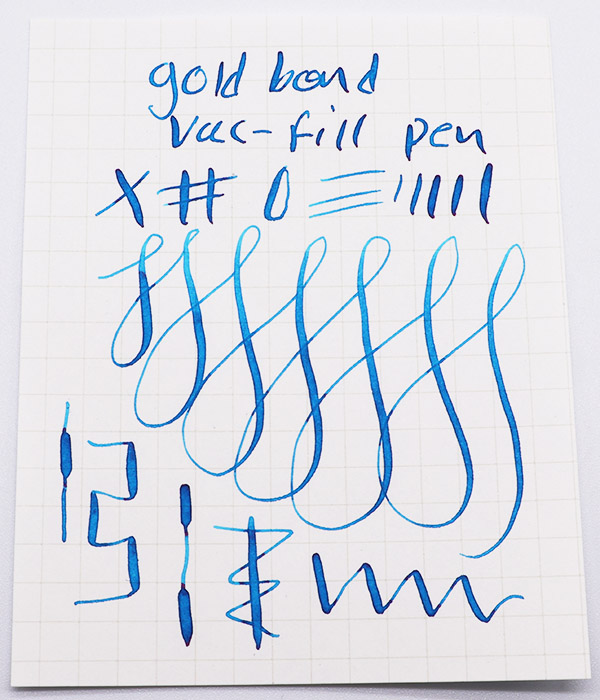 gold bond
vac-fill pen
X # 0